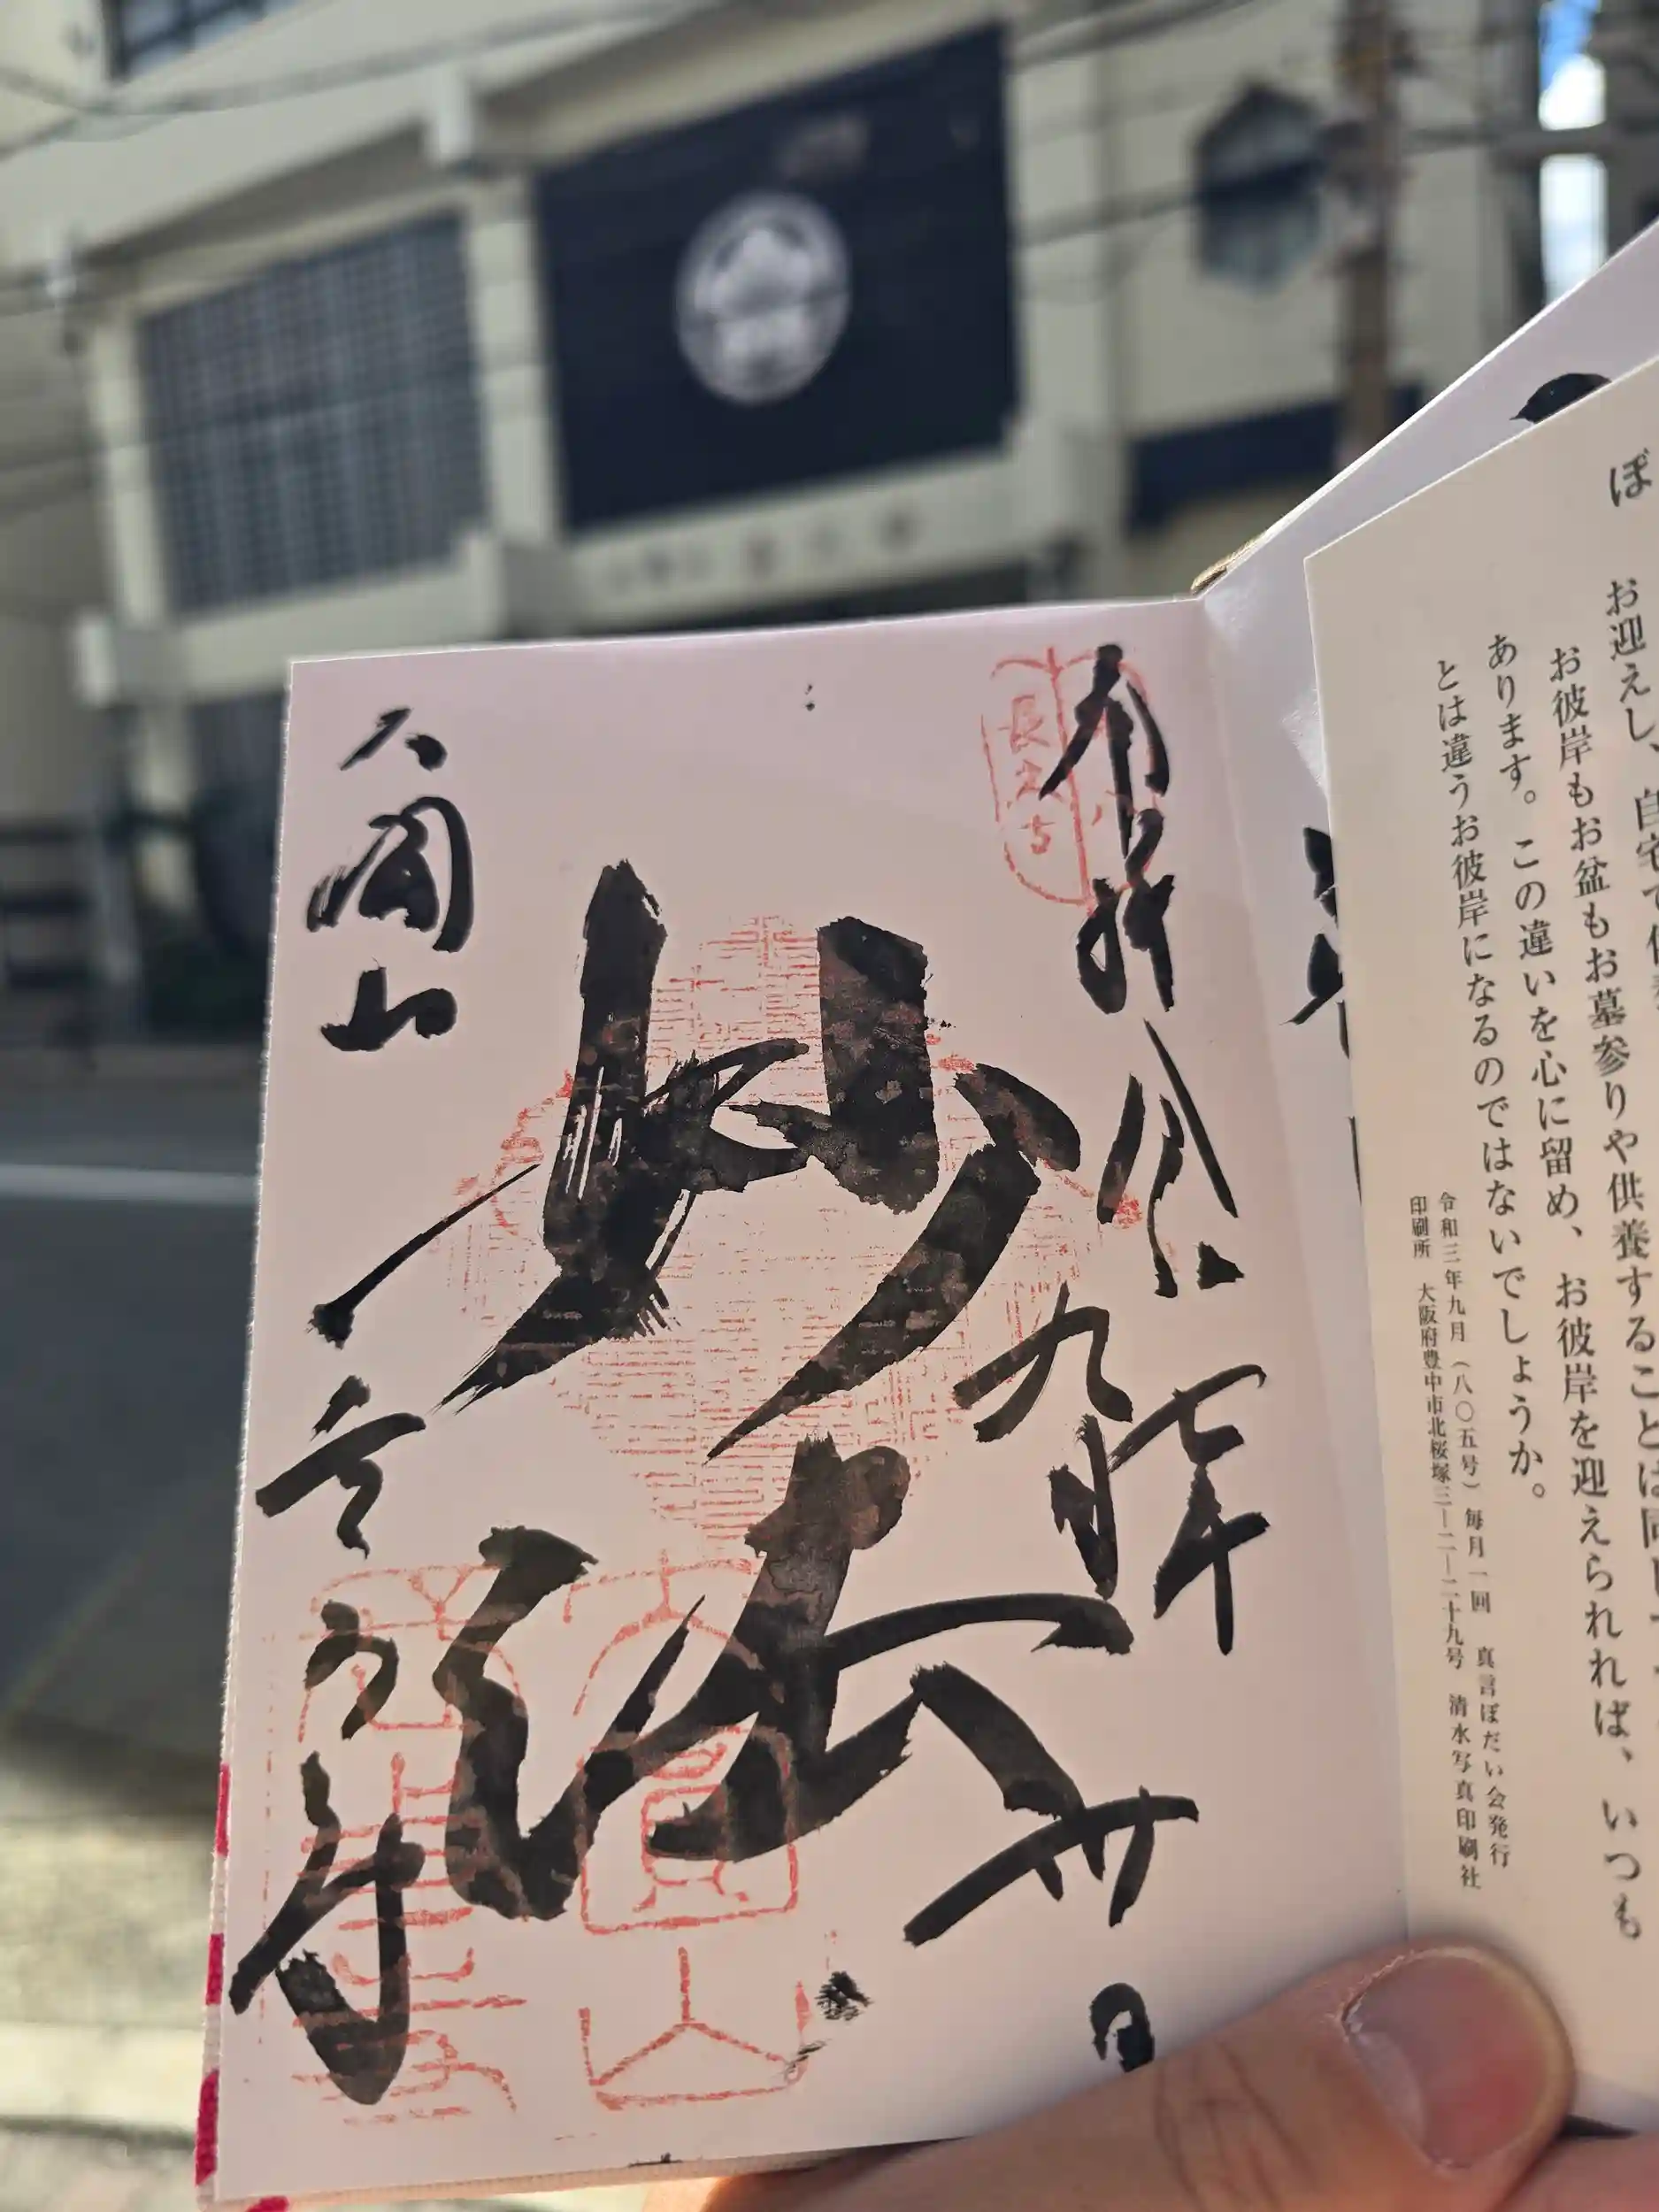 お迎えし、自宅で
お彼岸もお盆もお墓参りや供養することは同じ
あります。この違いを心に留め、お彼岸を迎えられれば、いつも
とは違うお彼岸になるのではないでしょうか。
令和三年九月（八〇五号）毎月一回　真言ぼだい会発行
印刷所　大阪府豊中市北桜塚三ー二ー二十九号　清水写真印刷社
奉拝
令和七年
九月廿日
妙法
圓山